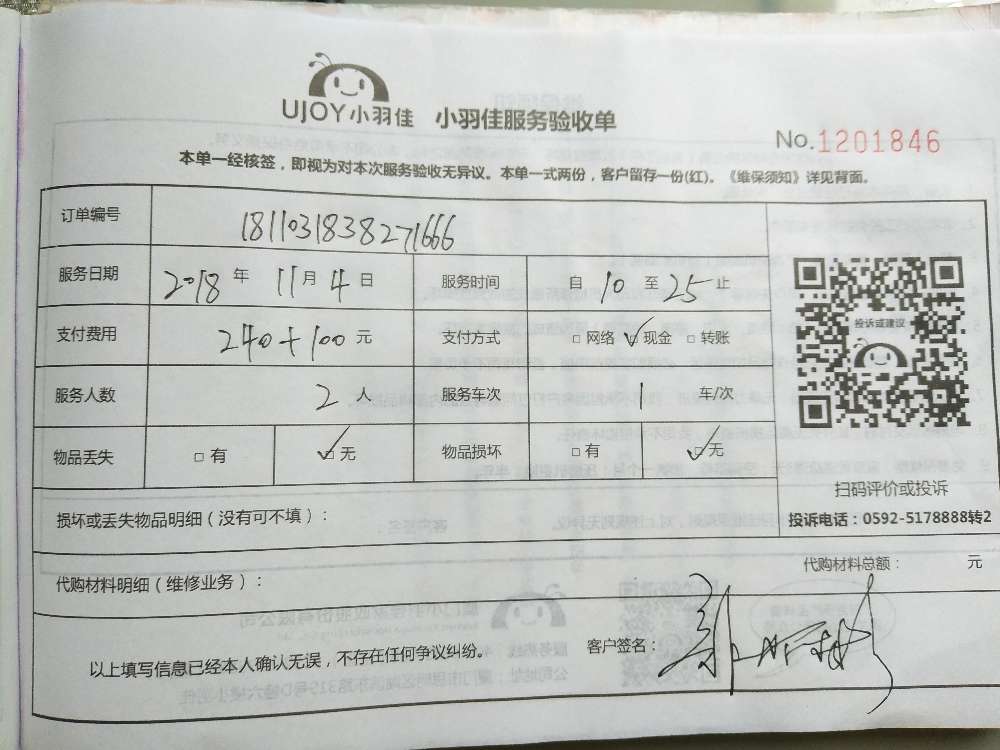 UJOY小羽佳 小羽佳服务验收单
No.1201846
本单一经核签，即视为对本次服务验收无异议。本单一式两份，客户留存一份(红)。《维保须知》详见背面。
订单编号 1811031838271666
服务日期 2018年11月4日 服务时间 自10至25止
支付费用 240+100元 支付方式 □网络 ☑现金 □转账
投诉或建议
服务人数 2人 服务车次 1车/次
物品丢失 □有 ☑无 物品损坏 □有 ☑无
扫码评价或投诉
损坏或丢失物品明细（没有可不填）：
投诉电话：0592-5178888转2
代购材料明细（维修业务）： 代购材料总额： 元
以上填写信息已经本人确认无误，不存在任何争议纠纷。 客户签名：